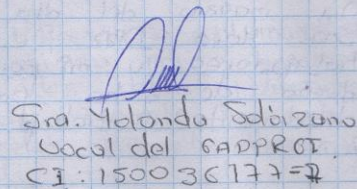 Sra. Yolanda Solórzano
Vocal del GADPRCI
CI: 150036177-2